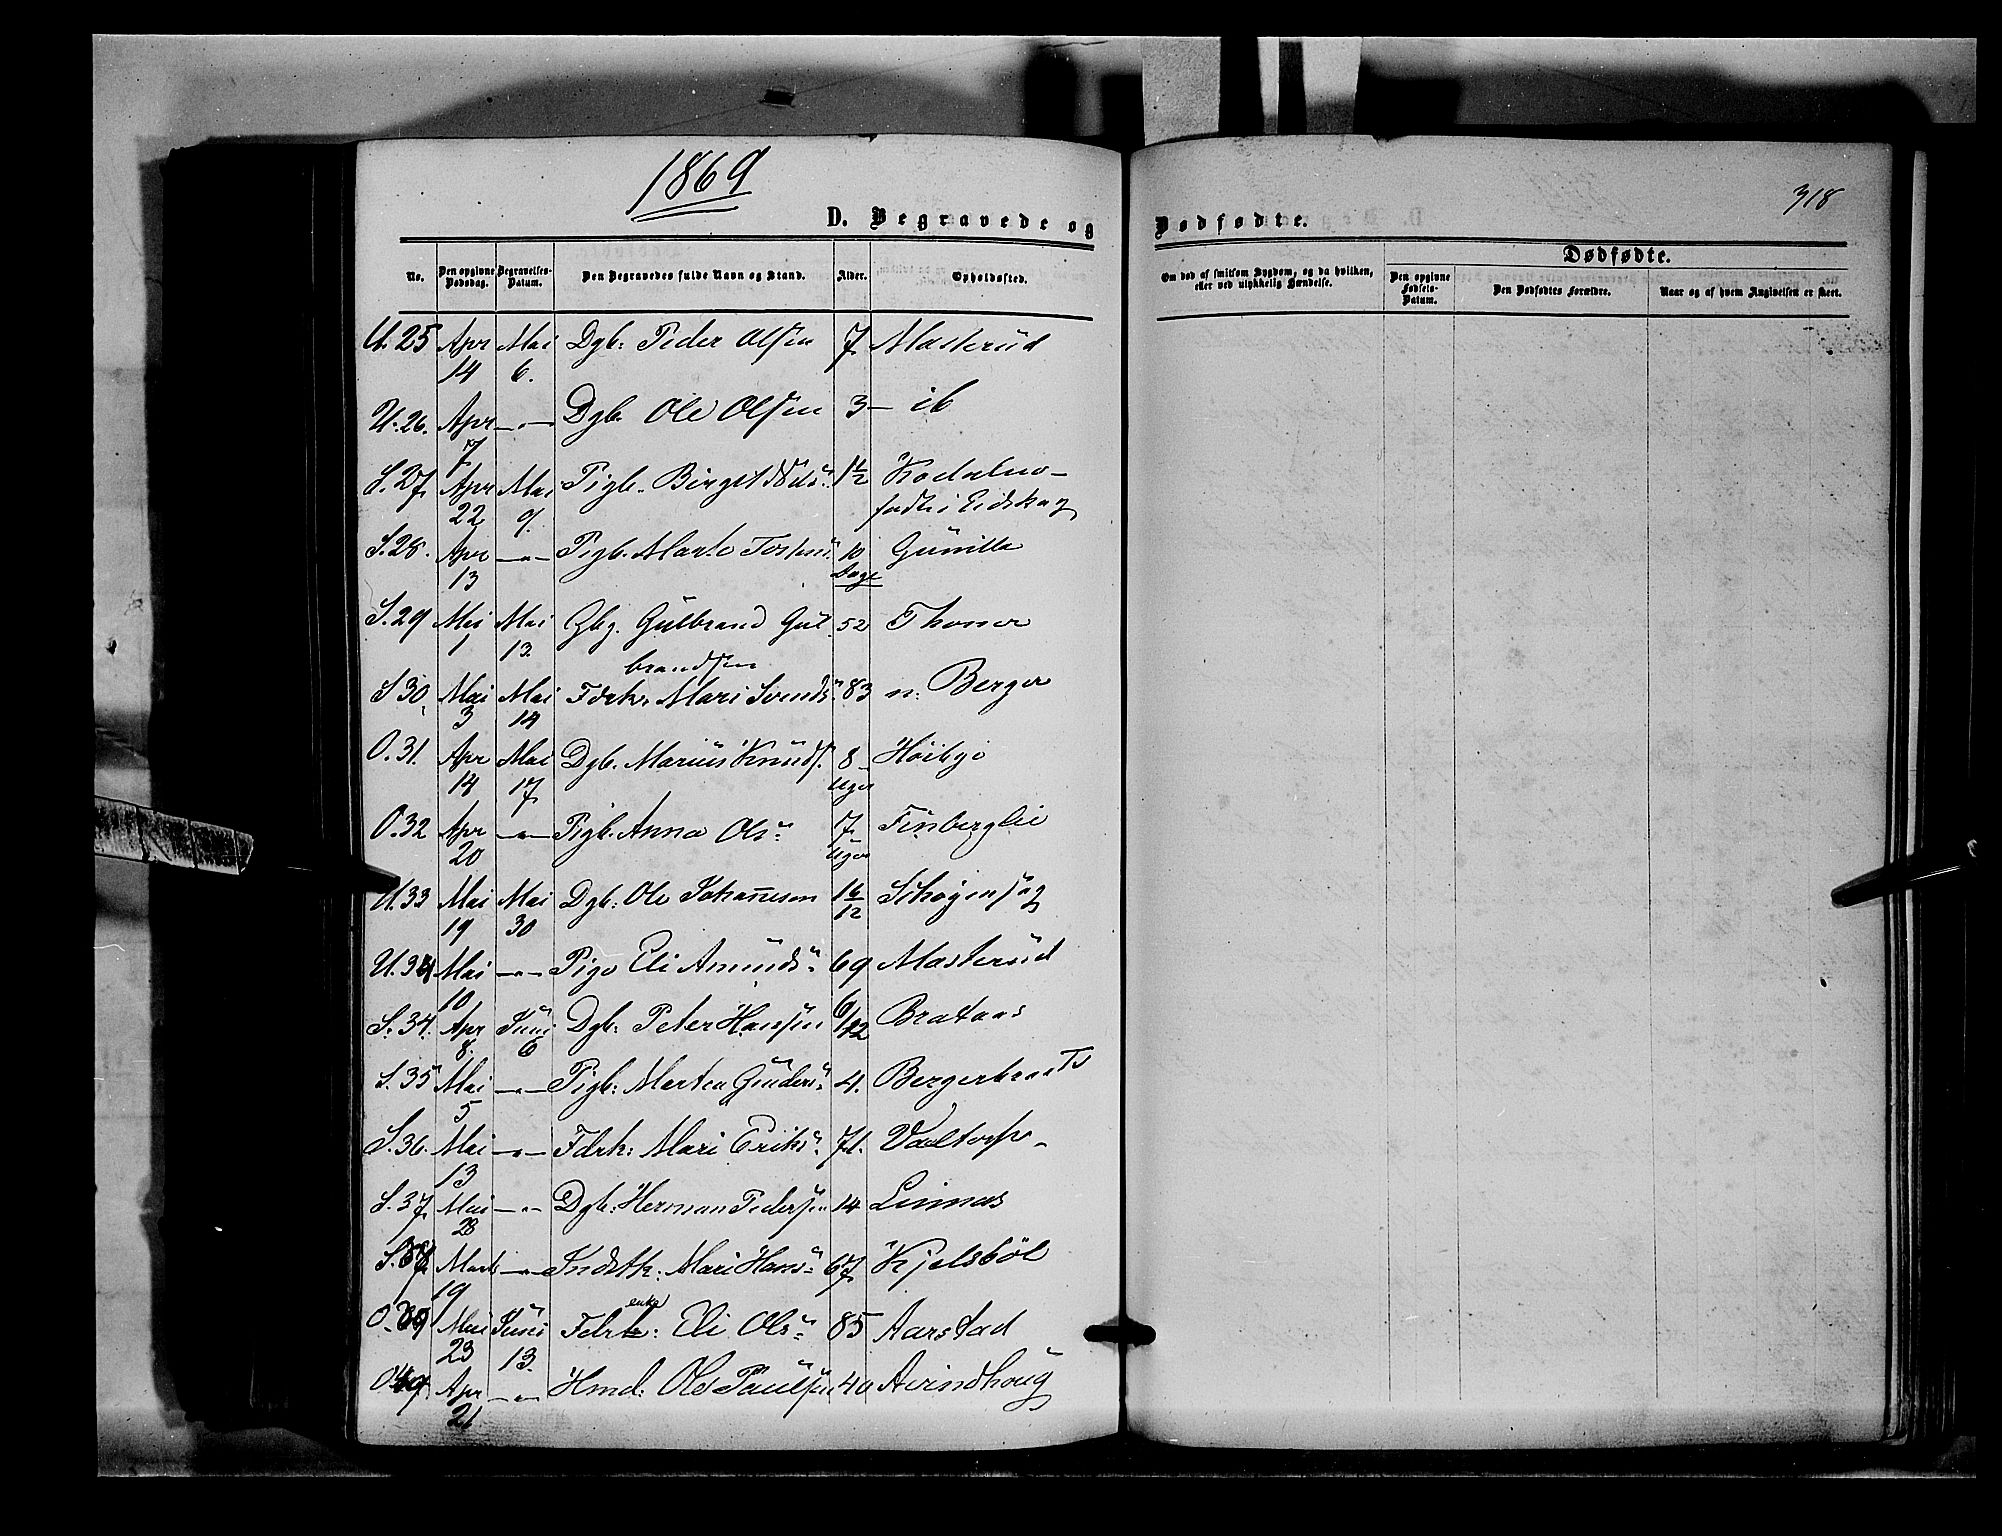 1869
318
D. Begravede og Dødfødte.
No. Den opgivne Dødsdag. Begravelses-Datum. Den Begravedes fulde Navn og Stand. Alder. Opholdssted.
Om død af smitsom Sygdom, og da hvilken, eller ved ulykkelig Hændelse. Den opgivne Fødsels-Datum. Dødfødte. Den Dødfødtes Forældre. Naar og af hvem Angivelsen er skeet.
U. 25 Apr 14 Mai 6. Dgb: Peder Olsen 7 Masterud
U. 26. Apr 7 —"— Dgb. Ole Olsen 3 — ib
S. 27 Apr 22 Mai 9. Pigb. Birgit
født i Eidskog
S. 28. Apr 13 —"— Pigb. Marte 10 Dage Gunilla
S. 29 Mai 1 Mai 13. Gbg. Gulbrand Gul- 52 Thoner
brandsen
S 30. Mai 3 Mai 14 Fdrk. Mari Svends: 83 n: Berger
O. 31. Apr 14 Mai 17 Dgb. Marius Knuds. 8 Uger Høibye
O. 32 Apr 20 —"— Pigb. Anna Ols: 7 Uger Finberglie
U. 33 Mai 19 Mai 30 Dgb: Ole Johannesen 16/12
U. 34 Mai 10 —"— Pige Eli Amunds: 69 Masterud
S. 34. Apr 8. Juni 6 Dgb: Peter Hansen 6/12 Brataas
S. 35 Mai 5 —"— Pigb: Martea Gunders: 4. Bergerbraats
S. 36. Mai 13 —"— Fdrk: Mari Eriks: 71. Valtorp
S. 37 Mai 28 —"— Dgb: Herman Pedersen 14 Linnes
S. Marts 19 —"— Indstk: Mari Hans: 67 Kjelsböl
O. Mai 23 Juni 13. Fdrk: enke Eli Ols: 85 Aarstad
O. Apr 21. —"— Hmd: Ole Paulsen 40 Arindhoug